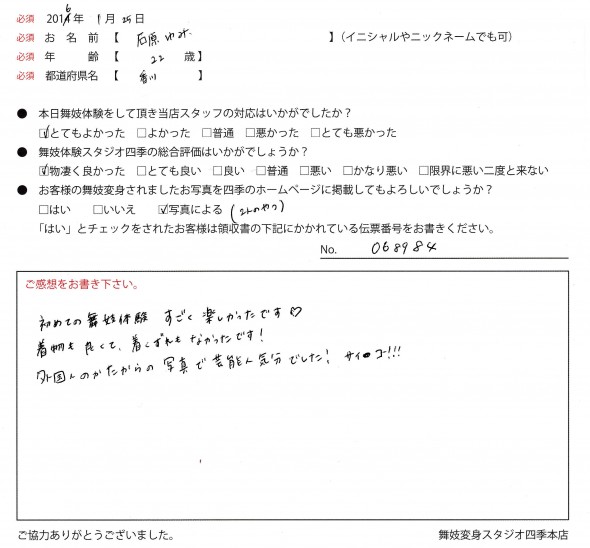 必須 2016年 1月 25日
必須 お名前【 石原 ゆみ 】(イニシャルやニックネームでも可)
必須 年齢【 22 歳】
必須 都道府県名【 香川 】
● 本日舞妓体験をして頂き当店スタッフの対応はいかがでしたか?
☑とてもよかった □よかった □普通 □悪かった □とても悪かった
● 舞妓体験スタジオ四季の総合評価はいかがでしょうか?
☑物凄く良かった □とても良い □良い □普通 □悪い □かなり悪い □限界に悪い二度と来ない
● お客様の舞妓変身されましたお写真を四季のホームページに掲載してもよろしいでしょうか?
□はい □いいえ ☑写真による (2人のやつ)
「はい」とチェックをされたお客様は領収書の下記にかかれている伝票番号をお書きください。
No. 068984
ご感想をお書き下さい。
初めての舞妓体験 すごく楽しかったです♡
着物も良くて、着くずれもなかったです!
外国人のかたからの写真で芸能人気分でした! サイコー!!!
ご協力ありがとうございました。 舞妓変身スタジオ四季本店